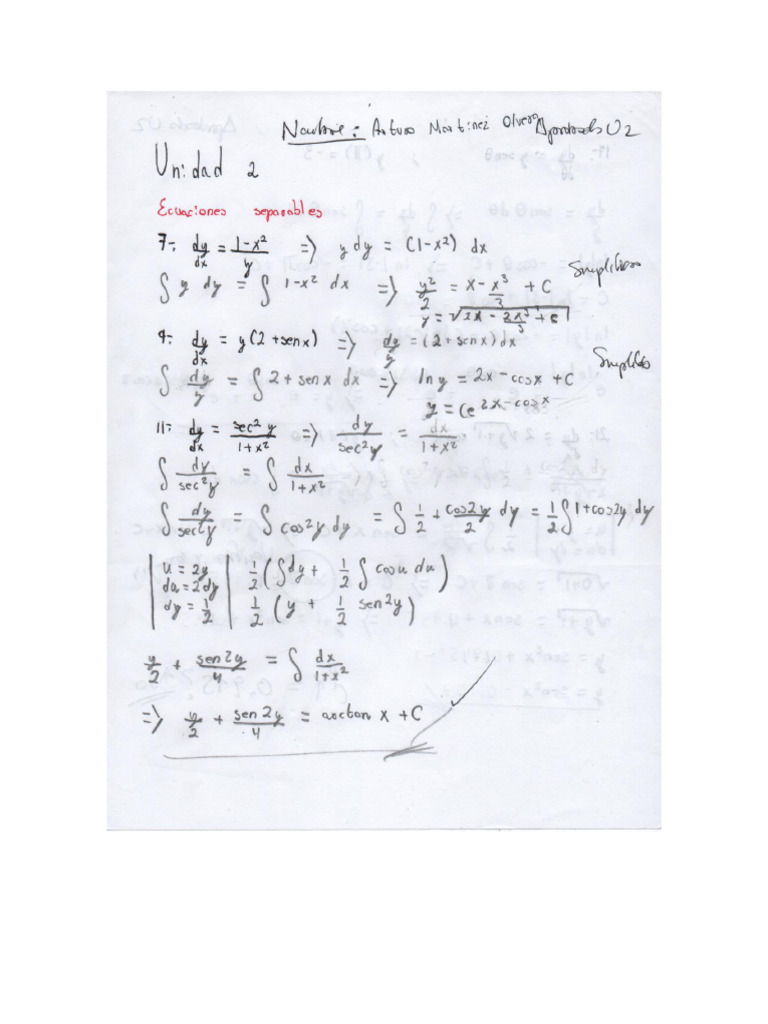 Nombre: Arturo Martinez Olvera Aprobado U2
Unidad 2
Ecuaciones separables
7-. dy/dx = 1-x²/y => y dy = (1-x²) dx
∫ y dy = ∫ 1-x² dx => y²/2 = x - x³/3 + C
y = √2x - 2x³/3 + c
9-. dy/dx = y(2+senx) => dy/y = (2+senx)dx
∫ dy/y = ∫ 2+senx dx => ln y = 2x-cosx + C
y = Ce^2x-cosx
11-. dy/dx = sec²y/1+x² => dy/sec²y = dx/1+x²
∫ dy/sec²y = ∫ dx/1+x²
∫ dy/sec²y = ∫ cos²y dy = ∫ 1/2 + cos2y/2 dy = 1/2 ∫ 1+cos2y dy
u = 2y | 1/2 (∫dy + 1/2 ∫ cosu du)
du = 2dy
dy = 1/2 | 1/2 (y + 1/2 sen2y)
y/2 + sen2y/4 = ∫ dx/1+x²
=> y/2 + sen2y/4 = arctan x + C